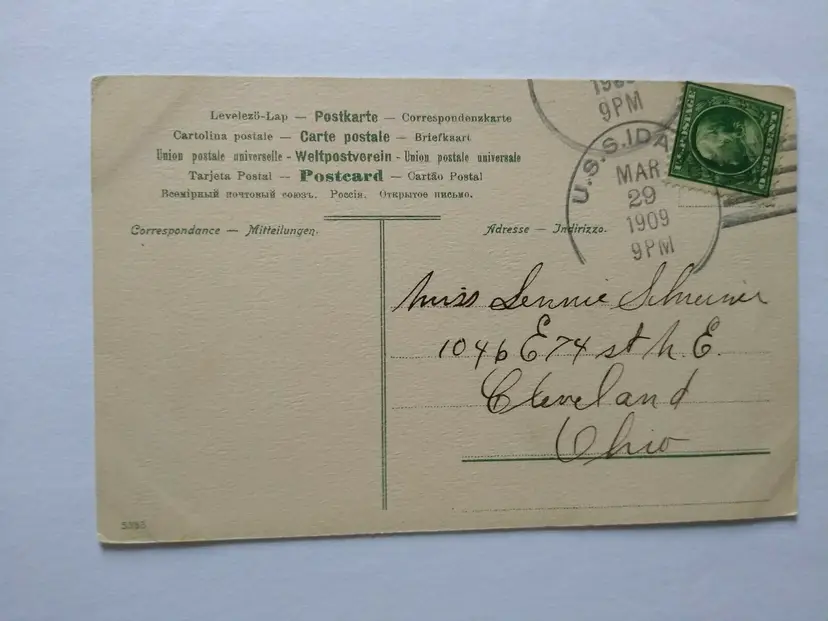 Levelező-Lap — Postkarte — Correspondenzkarte
Cartolina postale — Carte postale — Briefkaart
Union postale universelle - Weltpostverein - Union postale universale
Tarjeta Postal — Postcard — Cartão Postal
Всемірный почтовый союзъ. Россія. Открытое письмо.
9PM
U.S.S. IDA
MAR
29
1909
9PM
POSTAGE
Correspondance — Mitteilungen.
Adresse — Indirizzo.
Miss Lennie Schreiner
1046 E 74 st N.E.
Cleveland
Ohio